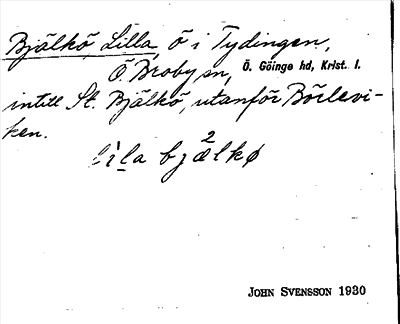 Bjälkö, Lilla, ö i Tydingen,
Ö. Broby sn, Ö. Göinge hd, Krist. l.
intill St. Bjälkö, utanför Börlevi-
ken.
lìla bjæ²lkø
JOHN SVENSSON 1930